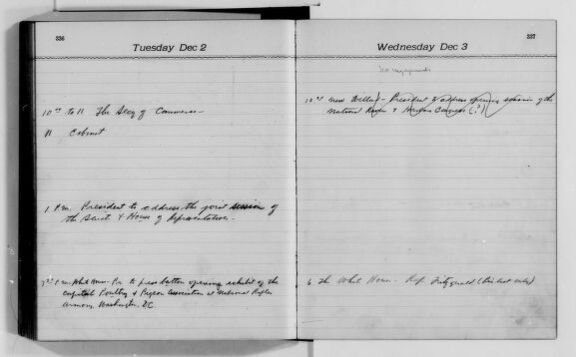 336
Tuesday Dec 2
10 to 11 The Secy of Commerce
11 Cabinet
1 P.m. President to address the joint session of
the Senate & House of Representatives.
P.m. White House - to press button opening exhibit of the
Capital Poultry & Pigeon Association at National Rifles
Armory, Washington, DC
337
Wednesday Dec 3
10 New Willard - President to address opening session of the
National Rivers & Harbors Congress (?)
6 The White House - Rep. Fitzgerald